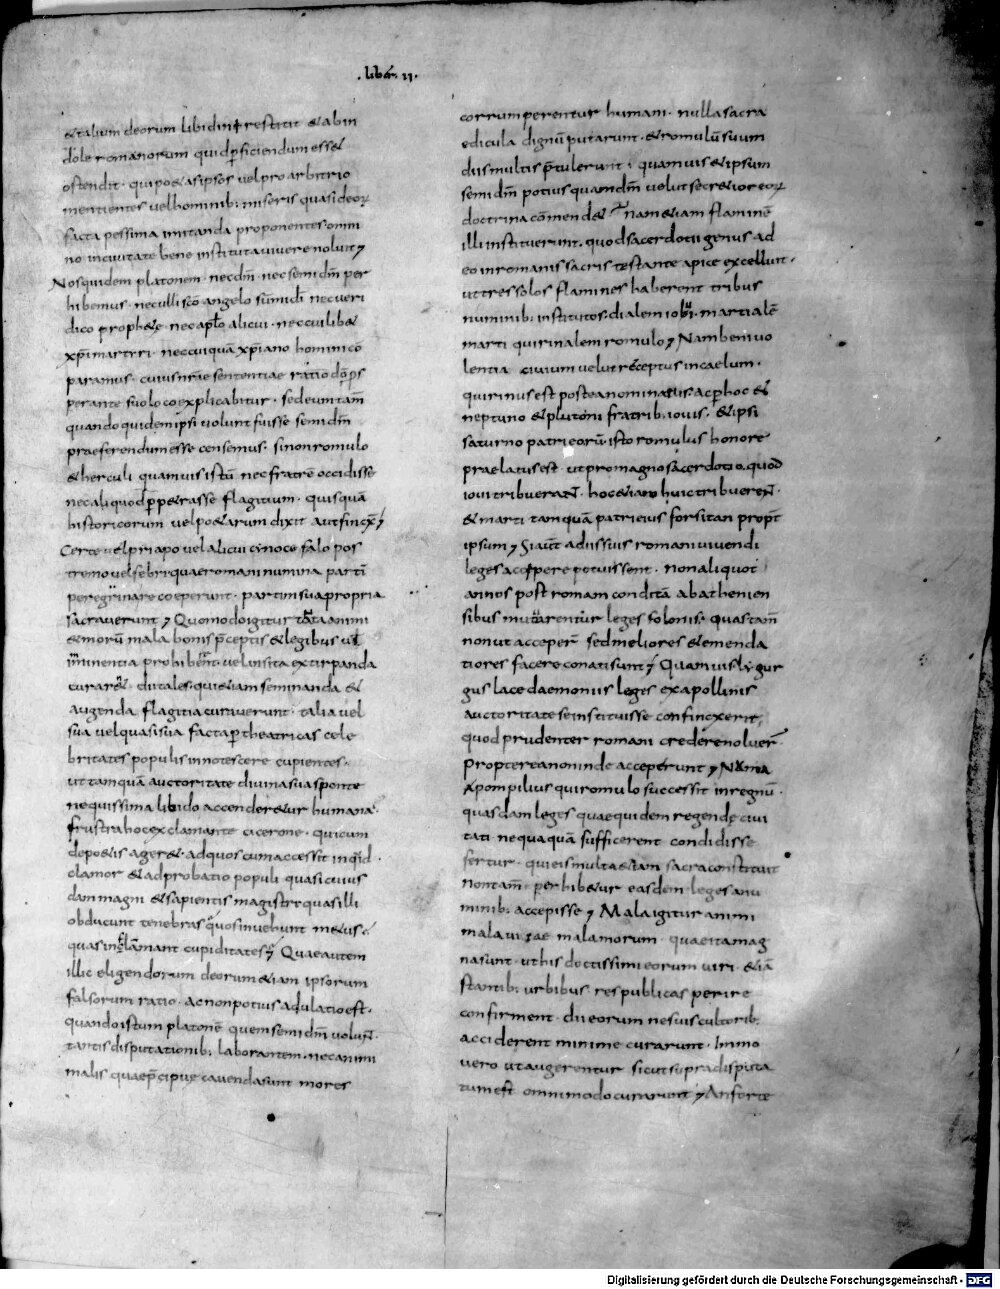 . liber . II .
& talium deorum libidini restitit & abin
dole romanorum quid perficiendum ess&
ostendit · qui po&as ipsos vel pro arbitrio
mentientes vel hominib; miseris quasi deorum
facta pessima imitanda proponentes omni
no in civitate bene instituta vivere noluit
Nos quidem platonem · nec dm̄ · nec semidm̄ per
hibemus · nec ulli sc̄o angelo sum̄i dī nec veri
dico proph&ae · nec apl̄o alicui · nec cuilib&
xp̄i martyri · nec cuiquā xp̄iano homini cō
paramus · cuius nr̄ae sententiae ratio dō p̱s
perante suo loco explicabitur · sed eum tam̄
quando quidem ipsi volunt fuisse semidm̄
praeferendum esse censemus · si non romulo
& herculi quamvis istū nec fratrē occidisse
nec aliquod perp&rasse flagitium · quisquā
historicorum vel po&arum dixit aut finxit
Certe vel priapo vel alicui cinocefalo pos
tremo vel febri quae romani numina partī
peregrina receperunt · partim sua propria
sacraverunt Quomodo igitur tanta animi
& morū mala bonis p̄ceptis & legibus vel
imminentia prohiberent vel insita extirpanda
curar& · dii tales · qui &iam seminanda &
augenda flagitia curaverunt · talia vel
sua vel quasi sua facta per theatricas cele
britates populis innotescere cupientes ·
ut tamquā auctoritate divina sua sponte
nequissima libido accender&ur humana ·
frustra hoc exclamante cicerone · qui cum
de po&is ager& · ad quos cum accessit inquid ·
clamor & adprobatio populi quasi cuius
dam magni & sapientis magistri quas illi
obducunt tenebras quos invehunt m&us ·
quas inflāmant cupiditates Quae autem
illic eligendorum deorum &iam ipsorum
falsorum ratio · ac non potius adulatio est ·
quando istum platonē quem semidm̄ volunt ·
tantis disputationib; laborantem · ne c animi
malis quae p̄cipue cavenda sunt mores
corrumperentur humani · nulla sacra
edicula dignū putarunt · & romulū suum
diis multis p̄tulerunt · quamvis & ipsum
semidm̄ potius quam dm̄ velut secr&ior eorum
doctrina cōmend& Nam &iam flaminē
illi instituerunt · quod sacerdotii genus ad
eo in romanis sacris testante apice excelluit ·
ut tres solos flamines haberent tribus
numinib; institutos · dialem iovi · martialē
marti quirinalem romulo Nam benivo
lentia civium velut receptus in caelum ·
quirinus est postea nominatus · ac per hoc &
neptuno & plutoni fratrib; iovis · & ipsi
saturno patri eorū isto romulus honore
praelatus est ut pro magno sacerdotio quod
iovi tribuerant · hoc &iam huic tribuerent ·
& marti tamquā patri eius forsitan propt̄
ipsum Si aut̄ a diis suis romani vivendi
leges accipere potuissent · non aliquot
annos post romam conditā ab athenien
sibus mutuarentur leges solonis · quas tam̄
non ut acceper̄ sed meliores & emenda
tiores facere conati sunt Quamvis lygur
gus lacedaemoniis leges ex apollinis
auctoritate se instituisse confinxerit
quod prudenter romani credere noluer̄ ·
propterea non inde acceperunt Numa
pompilius qui romulo successit in regnū ·
quasdam leges quae quidem regendę civi
tati nequaquā sufficerent condidisse
fertur · qui eis multa &iam sacra constituit
non tam̄ perhib&ur easdem leges a nu
minib; accepisse Mala igitur animi
mala vitae mala morum · quae ita mag
na sunt · ut his doctissimi eorum viri · &iā
stantib; urbibus res publicas perire
confirment · dii eorum ne suis cultorib;
acciderent minime curarunt · Immo
vero ut augerentur sicut supra disputa
tum est omnimodo curarunt An forte
Digitalisierung gefördert durch die Deutsche Forschungsgemeinschaft - DFG